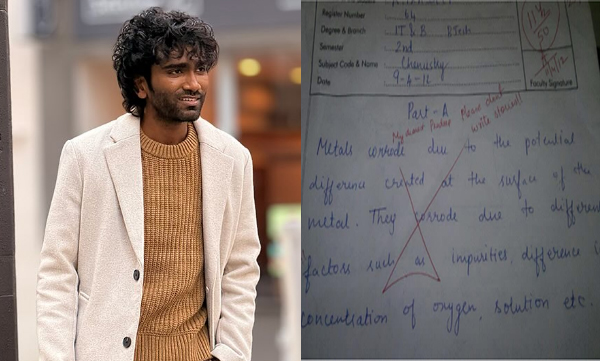 Register Number 64
Degree & Branch IT & B BTech
Semester 2nd
Subject Code & Name Chemistry
Date 9-4-12
50
Faculty Signature
Part - A
Please don't
write stories!!
Metals corrode due to the potential
difference created at the surface of the
metal. They corrode due to different
factors such as impurities, difference i
concentration of oxygen, solution etc.